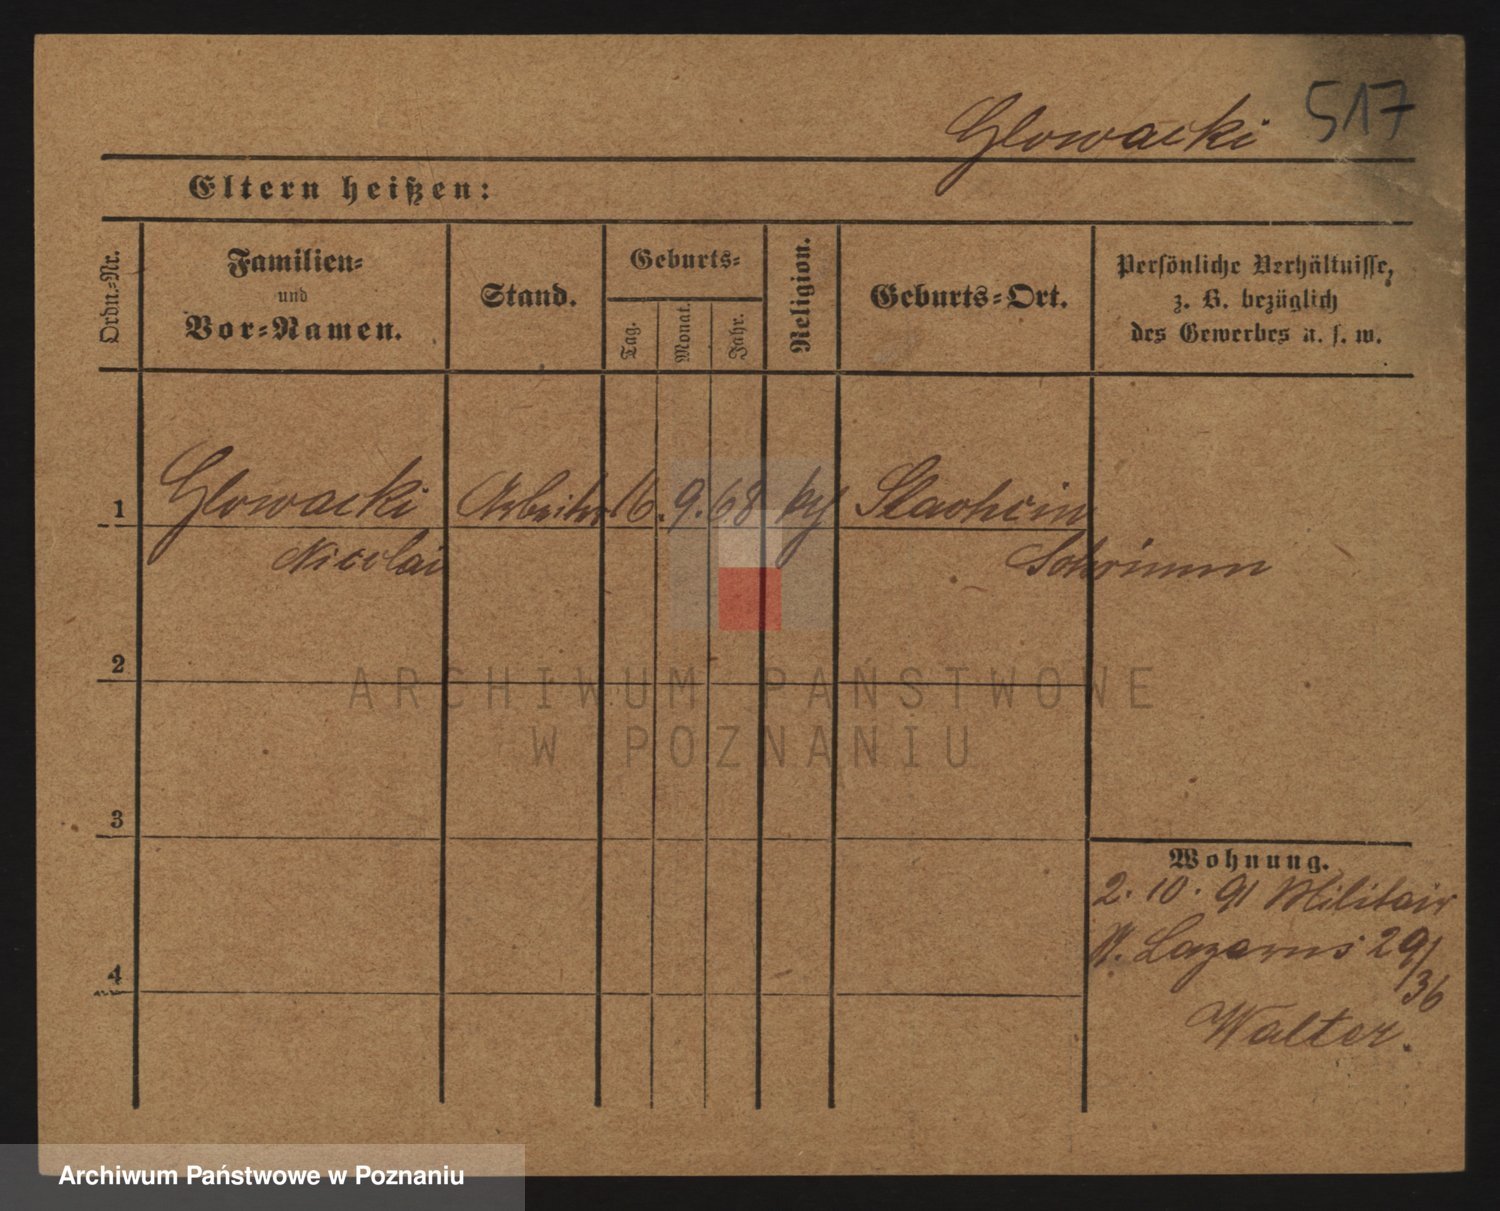 Glowacki 517
Eltern heißen:
Ordn.-Nr.
Familien-
und
Vor-Namen.
Stand.
Geburts-
Tag.
Monat.
Jahr.
Religion.
Geburts-Ort.
Persönliche Verhältnisse,
z. B. bezüglich
des Gewerbes u. s. w.
1 Glowacki Arbeiter 16. 9. 68
Nicolai Schrimm
2
ARCHIWUM PAŃSTWOWE
W POZNANIU
3
Wohnung.
2. 10. 91 Militair
St. Lazarus 29/
36
4
Walter.
Archiwum Państwowe w Poznaniu